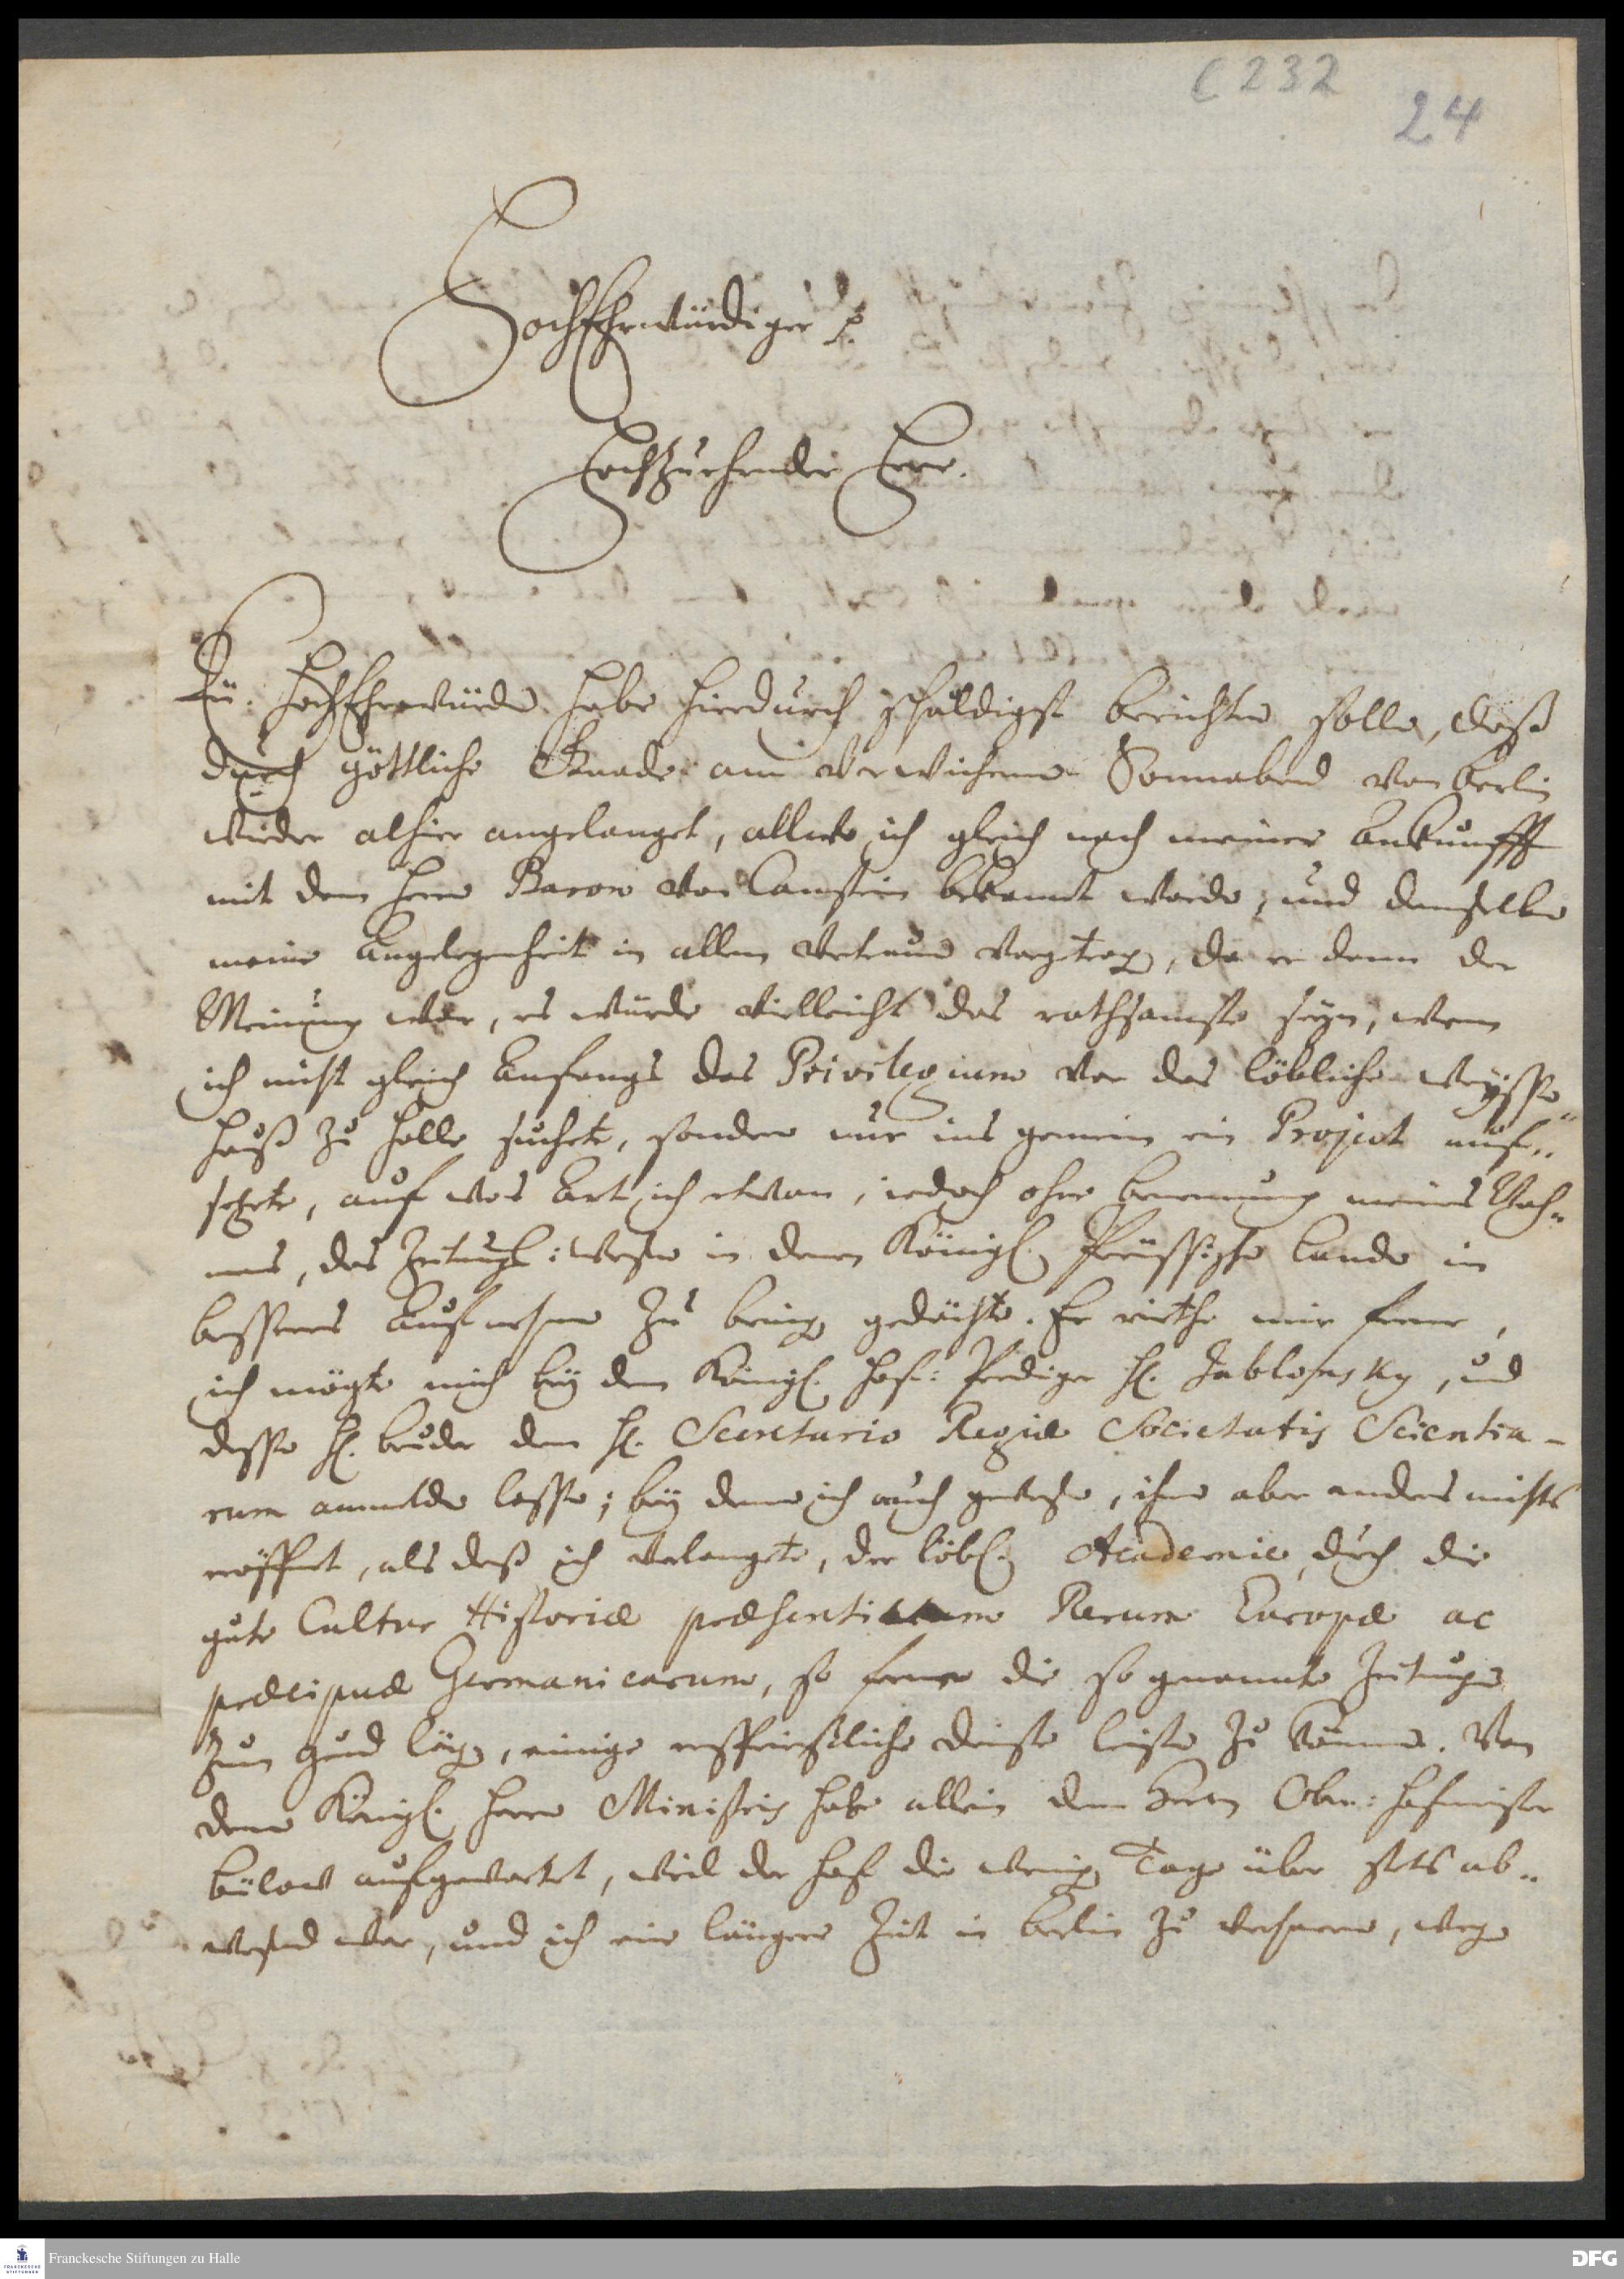 C 232
24
HochEhrwürdiger p.
Hochzuehrender Herr.
Eu. HochEhrwürde habe hierdurch schuldigst berichten sollen, daß
durch göttliche Gnade am verwichenen Sonnabend von Berlin
wieder alhier angelanget, allwo ich gleich nach meiner Ankunfft
mit dem Herrn Baron von Canstein bekannt worden, und demselben
meine Angelegenheit in allem Vertrauen vorgetragen, da er denn der
Meinung war, es würde vielleicht das rathsamste seyn, wenn
ich nicht gleich Anfangs das Privilegium vor das löbliche Weysse-
hauß zu Halle suchete, sondern nur ins gemein ein Project auf-
setzte, auf was Art ich etwan, iedoch ohne Benennung meines Nah-
mens, das Zeitungs-Wesen in denen Königl. Preussischen Landen in
besseres Aufnehmen zu bringen gedächte. Er riethe mir ferner,
ich mögte mich bey dem Königl. Hof-Prediger H. Jablonsky, und
dessen H. Bruder dem H. Secretario Regiæ Societatis Scientia-
rum anmelden lassen; bey denen ich auch gewesen, ihnen aber anders nichts
eröffnet, als daß ich verlangete, der löbl. Academie, durch die
gute Cultur Historiæ præsenti Rerum Europæ ac
præcipuæ Germanicarum, so ferner die so genannte Zeitungen
zum Grund lägen, einige ersprießliche Dienste leisten zu können. Von
denen Königl. Herrn Ministris habe allein dem Herrn Ober-Hofmeister
Bülow aufgewartet, weil der Hof die wenigen Tage über stets ab-
wesend war, und ich eine längere Zeit in Berlin zu verharren, wegen
Franckesche Stiftungen zu Halle
FRANCKESCHE STIFTUNGEN
DFG